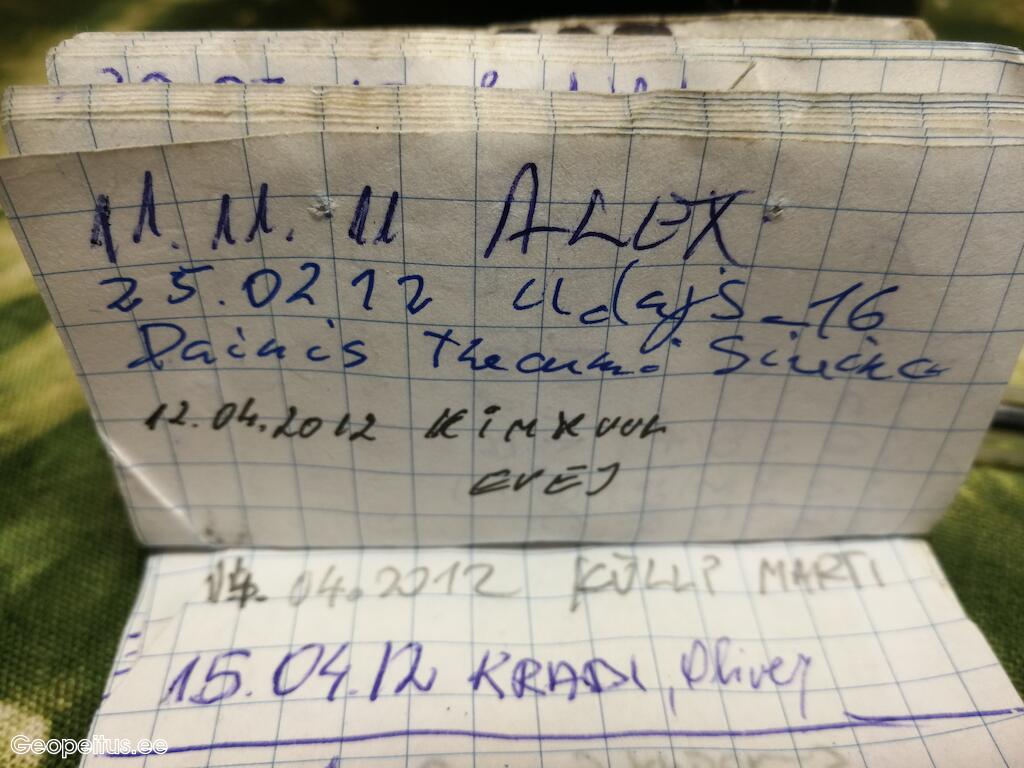 11.11.11 ALEX
25.02 12 Udajs_16
Dainis
12.04.2012 KiMXUUL
EVEJ
14.04.2012 KÜLLI MARTI
15.04.12 KRADI, Oliver
Geopeitus.ee